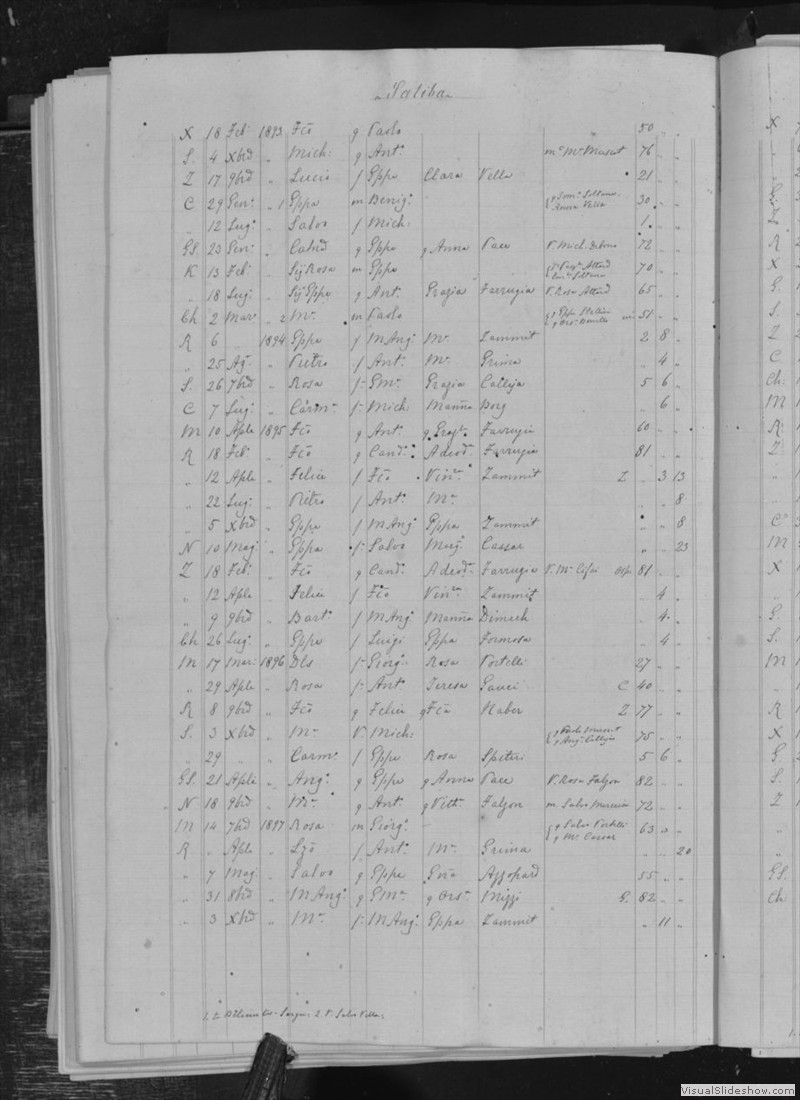 Saliba
X 18 Feb. 1893 Fco q Paolo 50 " "
S. 4 Xbrd " Mich: q Ant. m. Mr. Muscat 76 " "
Z 17 9brd " Lucio f Eppe Clara Vella 21 " "
C 29 Gen. " 1 Eppa m Benig. Anna Vella 30 " "
" 12 Lug. " Salvo f Mich: 1 " "
GS. 23 Gen. " Catnd q Eppe q Anna Pace V. Mich. 72 " "
K 13 Feb. " Sr Rosa m Eppe Attard 70 " "
" 18 Lug. " Sr Eppa q Ant. Grazia Farrugia V. Rosa Attard 65 " "
Ch 2 Mar. " 2 Mr. m Paolo 51 " "
R 6 " 1894 Eppa f M Ang. Mr. Zammit 2 8 "
" 25 Ag. " Pietro f Ant. Mr. Grima " 4 "
S. 26 7brd " Rosa f Gmr. Grazia Calleja 5 6 "
C 7 Lug. " Carmr. f Mich: Marña Borg " 6 "
M 10 Aple 1895 Fco q Ant. q Graz. Farrugia 60 " "
R 18 Feb. " Fco q Cand. Adeod. Farrugia 81 " "
" 12 Aple " Felice f Fco Vinr. Zammit Z " 3 13
" 22 Lug. " Pietro f Ant. Mr. " " 8
" 5 Xbrd " Eppe f M Ang. Eppa Zammit " " 8
N 10 Mag. " Eppa f Salvo Marg. Cassar " " 23
Z 18 Feb. " Fco q Cand. Adeod. Farrugia V. Mr. 81 " "
" 12 Aple " Felice f Fco Vinr. Zammit " 4 "
" 9 9brd " Bart. f M Ang. Marña Dimech " 4 "
Ch 26 Lug. " Eppa f Luigi Eppa Formosa " 4 "
M 17 Mar. 1896 Dls f Giorg. Rosa Portelli 27 " "
" 29 Aple " Rosa f Ant. Teresa Gauci C 40 " "
R 8 9brd " Fco q Felice q Fca Xaber Z 77 " "
S. 3 Xbrd " Mr. V. Mich: q Paolo Muscat q Ang. Calleja 75 " "
" 29 " " Carmr. f Eppe Rosa Spiteri 5 6 "
GS. 21 Aple " Ang. q Eppe q Anna Pace V. Rosa Falzon 82 " "
N 18 9brd " Mr. q Ant. q Vitt. Falzon m Salvo 72 " "
M 14 7brd 1897 Rosa m Giorg. – q Salvo Portelli q Mr. Cassar 63 " "
R " Aple " Lzo f Ant. Mr. Grima " " 20
" 7 Mag. " Salvo q Eppe Azzopard 55 " "
" 31 8brd " M Ang. q Gmr. q Ors. Mizzi G. 82 " "
" 3 Xbrd " Mr. f M Ang. Eppa Zammit " 11 "
2 V. Salvo Vella.
VisualSlideshow.com